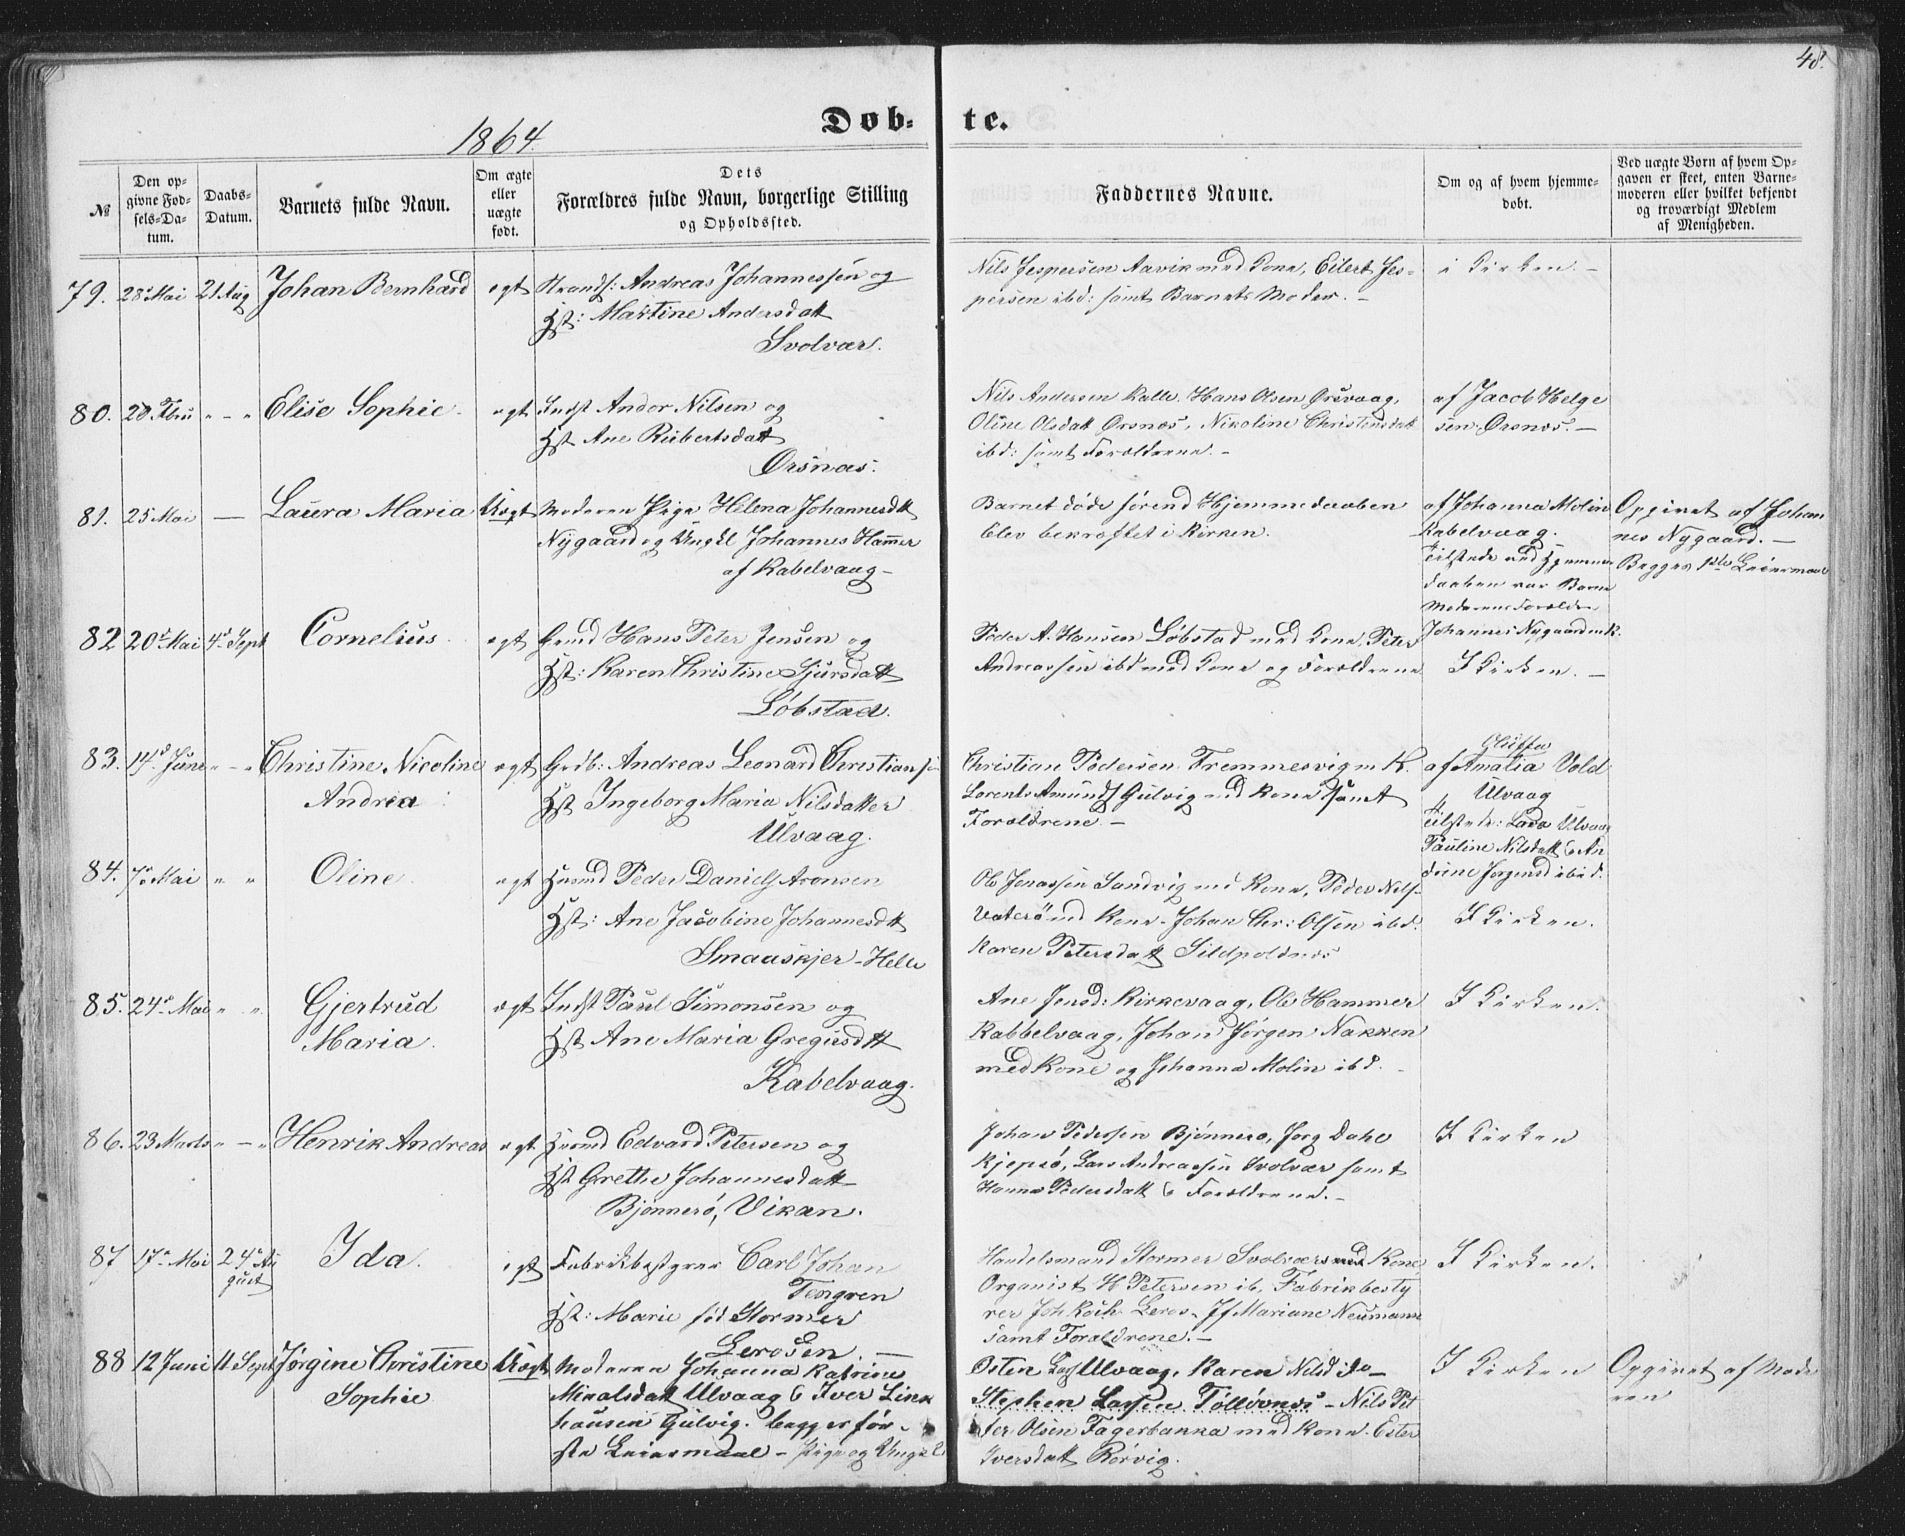 48.
1864.
Døb- te.
№
Den op-
givne Fød-
sels-Da-
tum.
Daabs-
Datum.
Barnets fulde Navn.
Om ægte
eller
uægte
født.
Dets
Forældres fulde Navn, borgerlige Stilling
og Opholdssted.
Faddernes Navne.
Om og af hvem hjemme-
døbt.
Ved uægte Børn af hvem Op-
gaven er skeet, enten Barne-
moderen eller hvilket bekjendt
og troværdigt Medlem
af Menigheden.
79. 28 Mai 21 Aug Johan Bernhard egt Strands: Andreas Johannessen og
Hst: Martine Andersdatt
Svolvær.
Nils Jespersen Aavik med Kone, Eilert Jes-
persen ibd: samt Barnets Moder. -
i Kirken. -
80. 28 Fbru " - " Elise Sophie egt Indst Andor Nilsen og
Hst Ane Riebertsdatt
Ørsnæs.
Nils Andersen Kalle, Hans Olsen Ørsvaag,
Oline Olsdatt Ørsnæs, Nikoline Christensdatt
ibd: samt Forældrene. -
af Jacob Helge
sen Ørsnæs. -
81. 25 Mai — Laura Maria Uægt Moderen Pige Helena Johannesdtt
Nygaard og Ungkl Johannes Hammer
af Kabelvaag -
Barnet døde førend Hjemmedaaben
blev bekræftet i Kirken.
af Johanna Molin
Kabelvaag.
Tilstede ved Hjemme
daaben var Barne
Moderens Forældre
Johannes Nygaard m K.
Opgivet af Johan
nes Nygaard. -
Begges 1ste Leiermaal
82 20de Mai 4de Sept Cornelius egt Grmd Hans Peter Jensen og
Hst: Karen Christine Sjursdatt
Løbstad.
Peder A. Hansen Løbstad med Kone, Peter
Andreassen ibd med Kone og Forældrene
I Kirken. -
83. 14d June " - " Christine Nicoline
Andrea
ægt Grdb: Andreas Leonard Christians
Hst Ingeborg Maria Nilsdatter
Ulvaag.
Christian Pedersen Fremmesvig m K.
Lorents Amunds Gulvig med Kone samt
Forældrene. -
Oluffa
af Amalia Vold
Ulvaag
tilstede: Lava Ulvaag
Pauline Nilsdatt & An
drine Jørgensd ibid.
84. 7de Mai " " Oline egt Husmd Peder Daniels Aronsen
Hst: Ane Jacobine Johannesdtt
Smaaskjer - Helle
Ole Jonassen Sandvig med Kone, Peder Nils-
Vaterø md Kone - Johan Chr: Olsen ibd.
Karen Petersdatt Sildpoldnes
I Kirken.
85. 24de Mai " " Gjertrud
Maria
ægt Indst Paul Simonsen og
Hst Ane Maria Gregusdtt
Kabelvaag.
Ane Jensd: Kirkevaag, Ole Hammer
Kabbelvaag, Johan Jørgen Nakken
med Kone og Johanna Molin ibd.
I Kirken.
86. 23 Marts " - " Henrik Andreas egt Husmd Edvard Petersen og
Hst Grethe Johannesdatt
Bjønnerø, Vikan.
Johan Pedersen Bjønnerø, Jørg Dahl
Kjepsø, Lars Andreassen Svolvær samt
Hanna Pedersdatt & Forældrene. -
I Kirken
87 17de Mai 24de Au
gust
Ida. egt Fabrikbestyrer Carl Johan
Tengren
Hst: Marie fød Stormer
Lerosen. —
Handelsmand Stormer Svolvær med Kone
Organist H Petersen ib, Fabrikbesty
rer Joh Koch Leros - Jf Mariane Neumann
samt Forældrene. -
I Kirken.
88 12 Juni 11 Sept Jørgine Christine
Sophie
Uægt Moderen Johanna Katrine
Mikalsdatt Ulvaag & Iver Link
hausen Gulvig. begg er før-
ste Leiermaal - Pige og Ungkl
Osten Lars Ulvaag, Karen Nilsd do -
Stephen Larsen Tolløvnes - Nils Pet
ter Olsen Fagerbakka med Kone - Ester
Iversdatt Rørvig.
I Kirken
Opgivet af Mode
ren